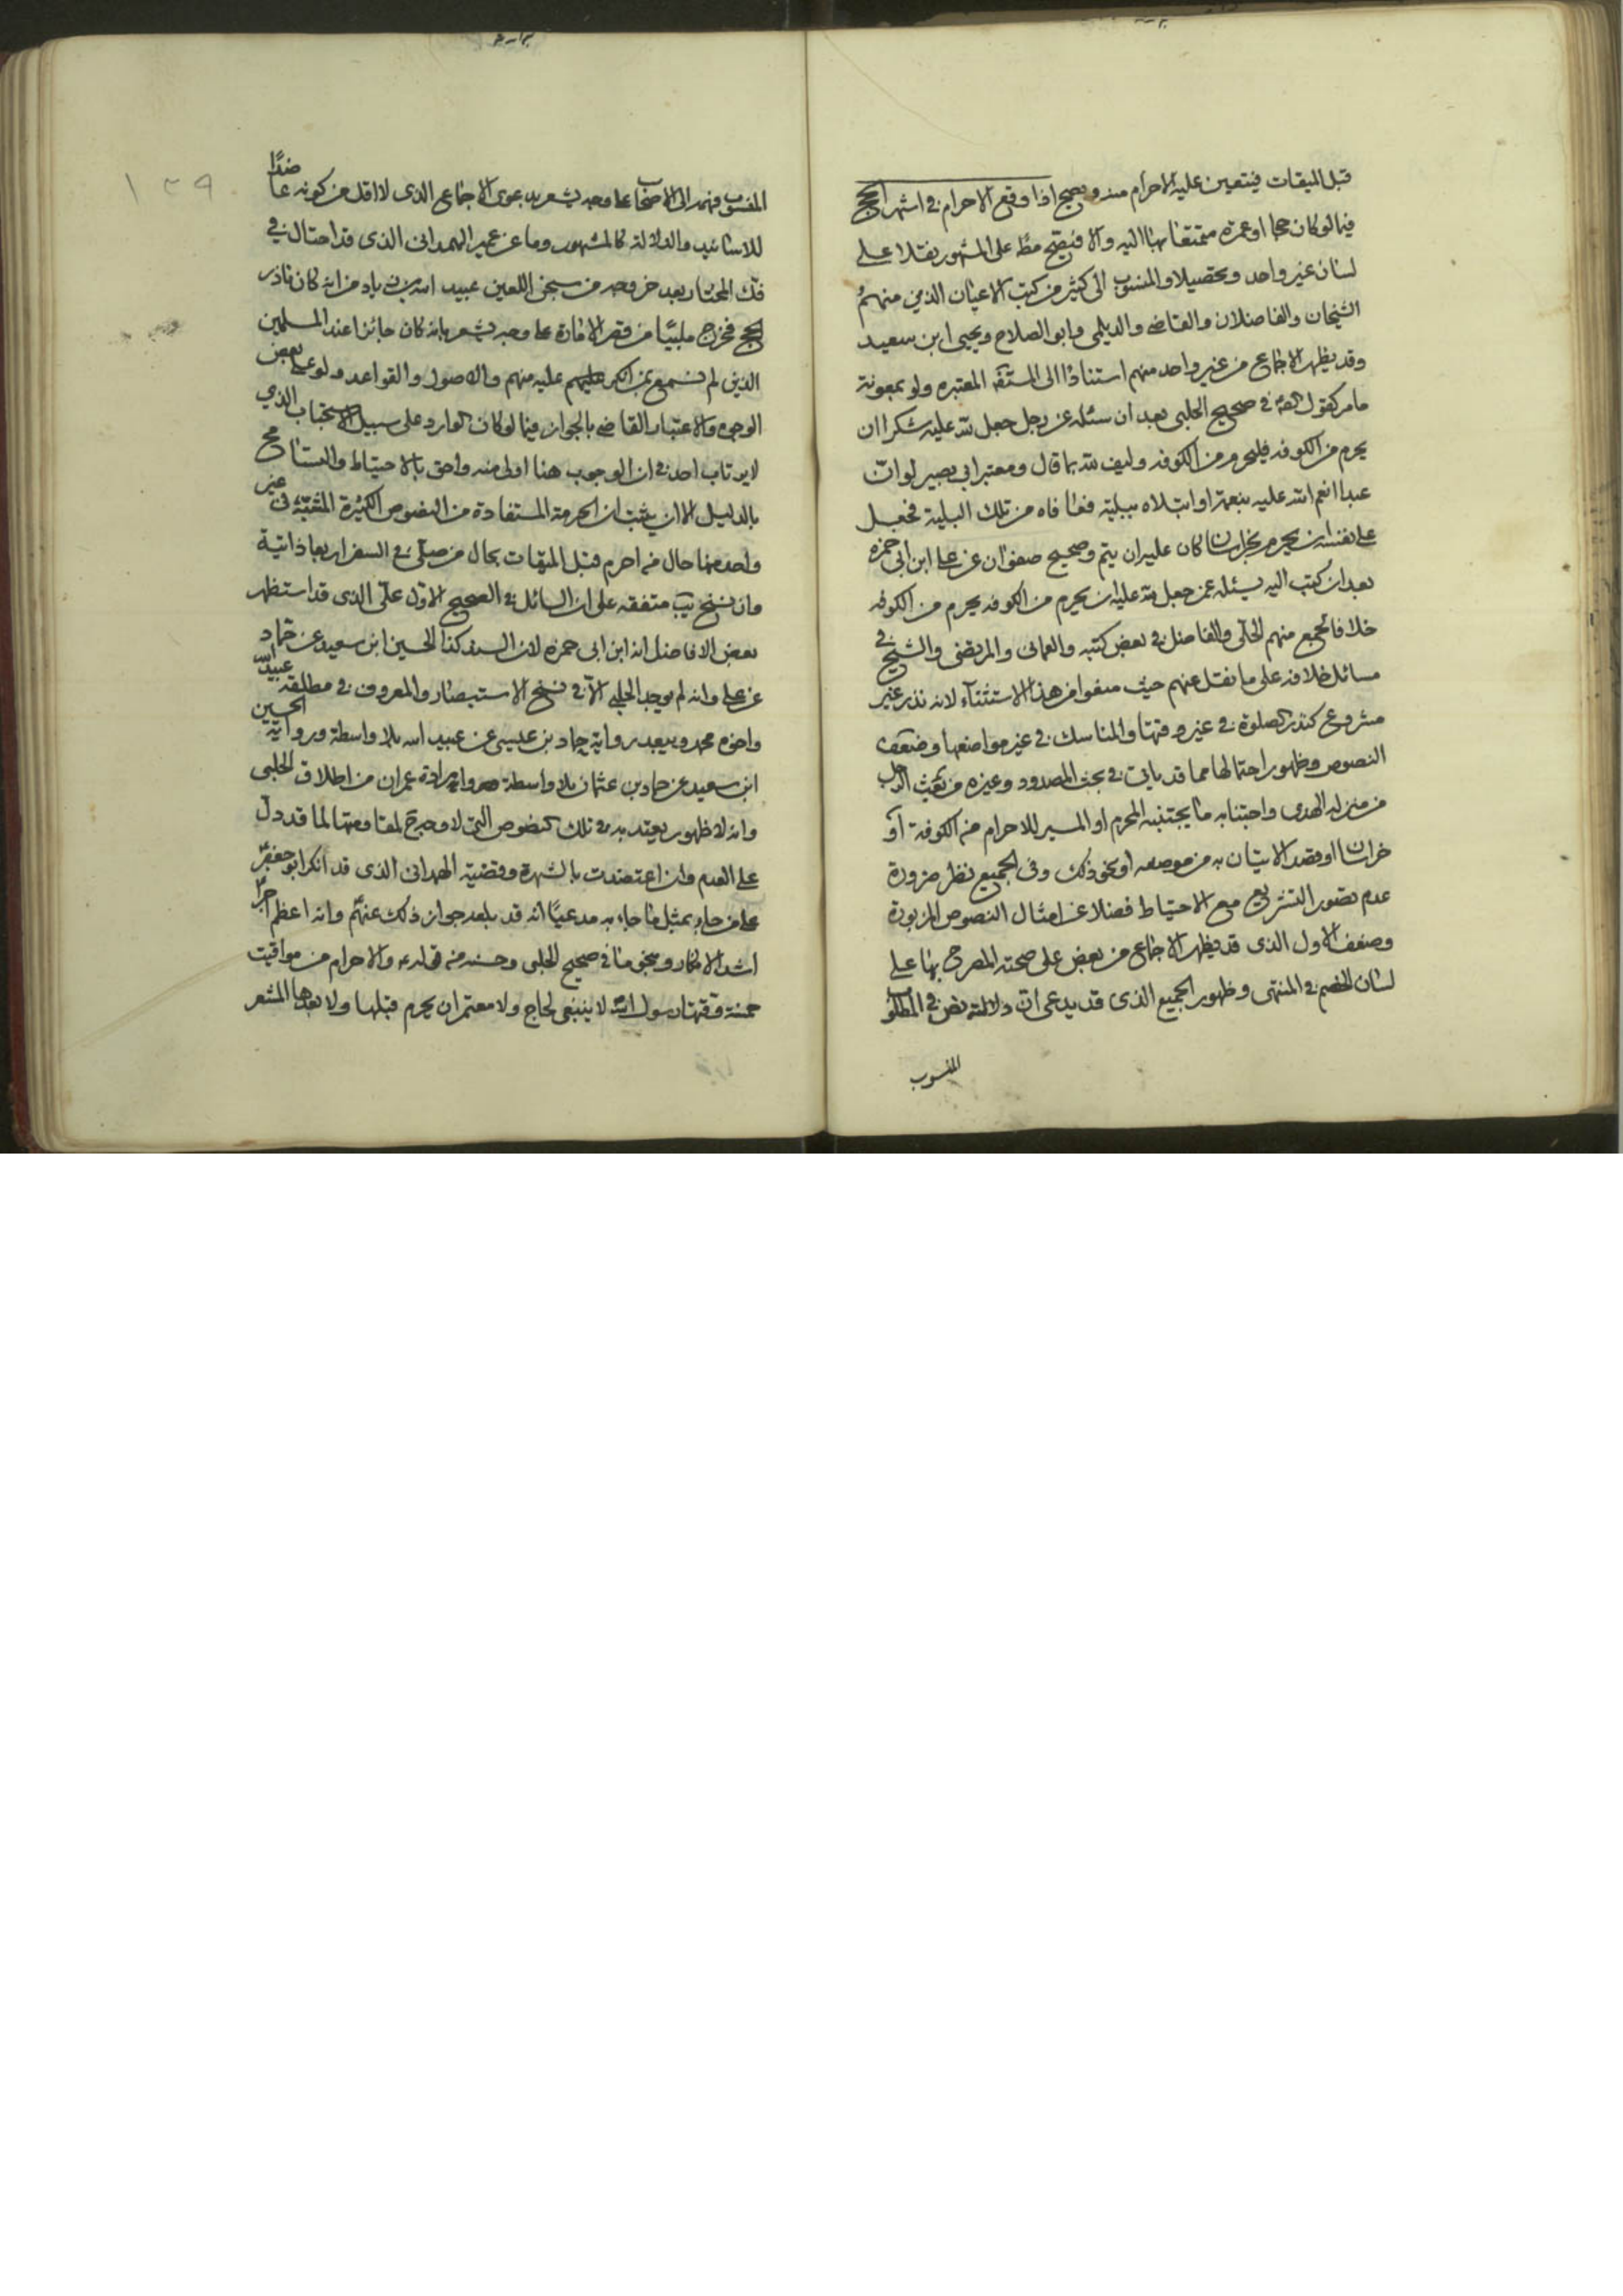 قبل الميقات فيتعين عليه الاحرام منه ويصح اذا وقع الاحرام في اشهر الحج
فيما لو كان حجا او عمرة متمتعا بها اليه والا فيصح مط على المشهور نقلا على
لسان غير واحد وتحصيلا والمنسوب الى كثير من كتب الاعيان الذين منهم
الشيخان والفاضلان والقاضي والديلمي وابو الصلاح ويحيى ابن سعيد
وقد يظهر الاجماع من غير واحد منهم استنادا الى المعتبره ولو بمعونة
ما مر كقول في صحيح الحلبي بعد ان سئله عن رجل جعل لله عليه شكرا ان
يحرم من الكوفه فليحرم من الكوفه وليف لله بما قال ومعتبر ابي بصير لو ان
عبدا انعم الله عليه بنعمة او ابتلاه ببلية فعافاه من تلك البلية فجعل
على نفسه ان يحرم بخراسان كان عليه ان يتم وصحيح صفوان عن علي ابن ابي حمزه
بعد ان كتب اليه يسئله عمن جعل لله عليه ان يحرم من الكوفه يحرم من الكوفه
خلافا لجمع منهم الحلي والفاضل في بعض كتبه والعماني والمرتضى والشيخ في
مسائل خلافه على ما نقل عنهم حيث منعوا من هذا الاستثناء لانه نذر غير
مشروع كنذر الصلوة في غير وقتها والمناسك في غير مواضعها وضعف
النصوص وظهور احتمالها مما قد ياتي في بحث المصدود وغيره من بعث الرجل
من منزله الهدى واجتنابه ما يجتنبه المحرم او المسير للاحرام من الكوفة او
خراسان او قصد الاتيان به من موضعه او نحو ذلك وفي الجميع نظر ضرورة
عدم تصور التشريع مع الاحتياط فضلا عن امثال النصوص المزبورة
وضعف الاول الذى قد يظهر الاجماع من بعض على صحته المصرح بها على
لسان الخصم في المنتهى وظهور الجميع الذى قد يدعى ان دلالته نص في المطلوب
المنسوب
١٣٩
المنسوب فهمه الى الاصحاب على وجه يشعر بدعوى الاجماع الذى لا اقل من كونه عاضدا
للاسانيد والدلالة كالمشهور وما عن عمير الهمداني الذى قد احتال في
فك المختار بعد خروجه من سجن اللعين عبيد الله بن زياد من انه كان ناذر
الحج فخرج ملبيا من قصر الامارة على وجه يشعر بانه كان جائزا عند المسلمين
الذين لم نسمع بمن انكر عليه منهم والاصول والقواعد ولو على بعض
الوجوه والاعتبار القاضي بالجواز فيما لو كان الوارد على سبيل الاستحباب الذي
لا يرتاب احد في ان الوجوب هنا اولى منه واحق بالاحتياط والتسامح
بالدليل الا ان يثبت ان الحرمة المستفادة من النصوص الكثيرة في غير
واحد منها حال من احرم قبل الميقات بحال من صلى في السفر اربعا ذاتية
وان نسخ يب متفقه على ان السائل في الصحيح الاول علي الذى قد استظهر
بعض الافاضل انه ابن ابي حمزه لان السند كذا الحسين ابن سعيد عن حماد
عن علي وانه لم يوجد الحلبي الا في نسخ الاستبصار والمعروف في مطلقه عبيد الله
واخوه محمد ويبعد رواية حماد بن عيسى عن عبيد الله بلا واسطة ورواية الحسين
ابن سعيد عن حماد بن عثمان بلا واسطة وارادة عمران من اطلاق الحلبي
وانه لا ظهور يعتد به في تلك النصوص التي لا وجه لمقاومتها لما قد دل
على العدم وان اعتضدت بالشهرة وقضية الهمداني الذى قد انكر ابو جعفر
على من جاء بمثل ما جاء به مدعيا انه قد بلغه جواز ذلك عنهم وانه اعظم اجرا
اشد الانكار وبنحو ما في صحيح الحلبي وحسنه من قوله والاحرام من مواقيت
خمسة وقتها رسول الله لا ينبغى لحاج ولا معتمر ان يحرم قبلها ولا بعدها المشعر